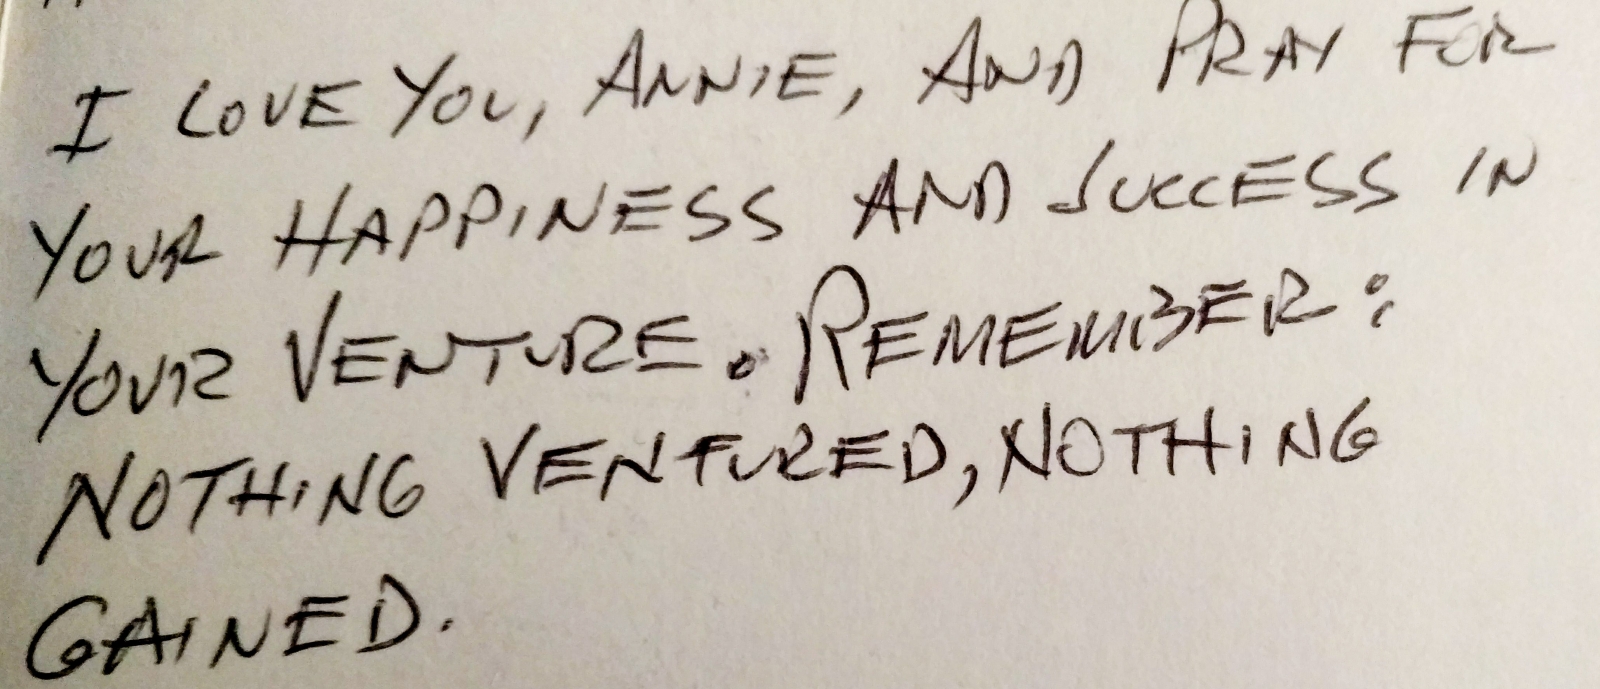 I LOVE YOU, ANNIE, AND PRAY FOR
YOUR HAPPINESS AND SUCCESS IN
YOUR VENTURE. REMEMBER:
NOTHING VENTURED, NOTHING
GAINED.